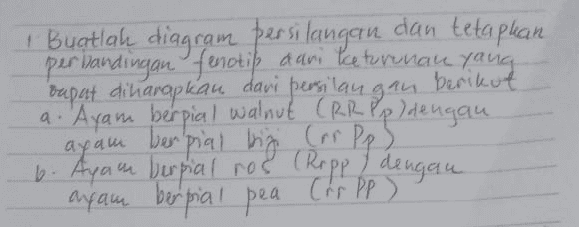 1 Buatlah diagram persilangan dan tetapkan
perbandingan fenotip dari keturunan yang
dapat diharapkan dari persilangan berikut
a. Ayam berpial walnut (RRPp) dengan
ayam berpial biji (rr Pp)
b. Ayam berpial ros (Rrpp) dengan
ayam berpial pea (rr Pp)